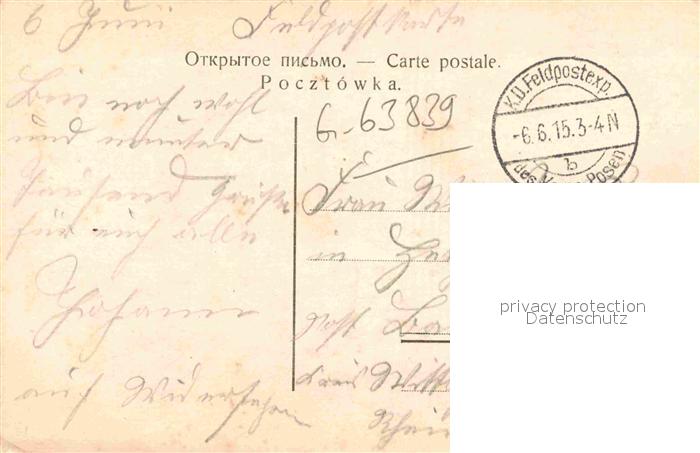 6 Juni Feldpostkarte
Открытое письмо. — Carte postale.
Pocztówka.
K.D. Feldpostexp.
-6.6.15.3-4N
b
des Posen
6-63839
Bin noch wohl
und munter
Tausend Grüße
für euch alle
Johann
auf Wiedersehen
Frau
in
Post
Kreis
privacy protection
Datenschutz